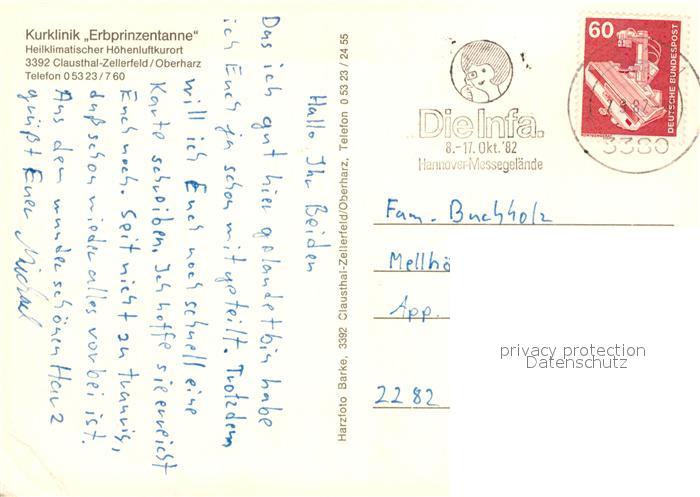 Kurklinik „Erbprinzentanne“
Heilklimatischer Höhenluftkurort
3392 Clausthal-Zellerfeld/Oberharz
Telefon 0 53 23 / 7 60
Hallo Ihr Beiden
Das ich gut hier gelandet bin habe
ich Euch ja schon mitgeteilt. Trotzdem
will ich Euch noch schnell eine
Karte schreiben. Ich hoffe sie erreicht
Euch noch. Seit nicht zu traurig,
daß schon wieder alles vorbei ist.
Aus dem wunderschönen Harz
grüßt Euer Michael
Harzfoto Barke, 3392 Clausthal-Zellerfeld/Oberharz, Telefon 0 53 23 / 24 55
Die Infa.
8.-17. Okt. '82
Hannover-Messegelände
60
DEUTSCHE BUNDESPOST
3380
Fam. Buchholz
Mellhö
App.
2282
privacy protection
Datenschutz